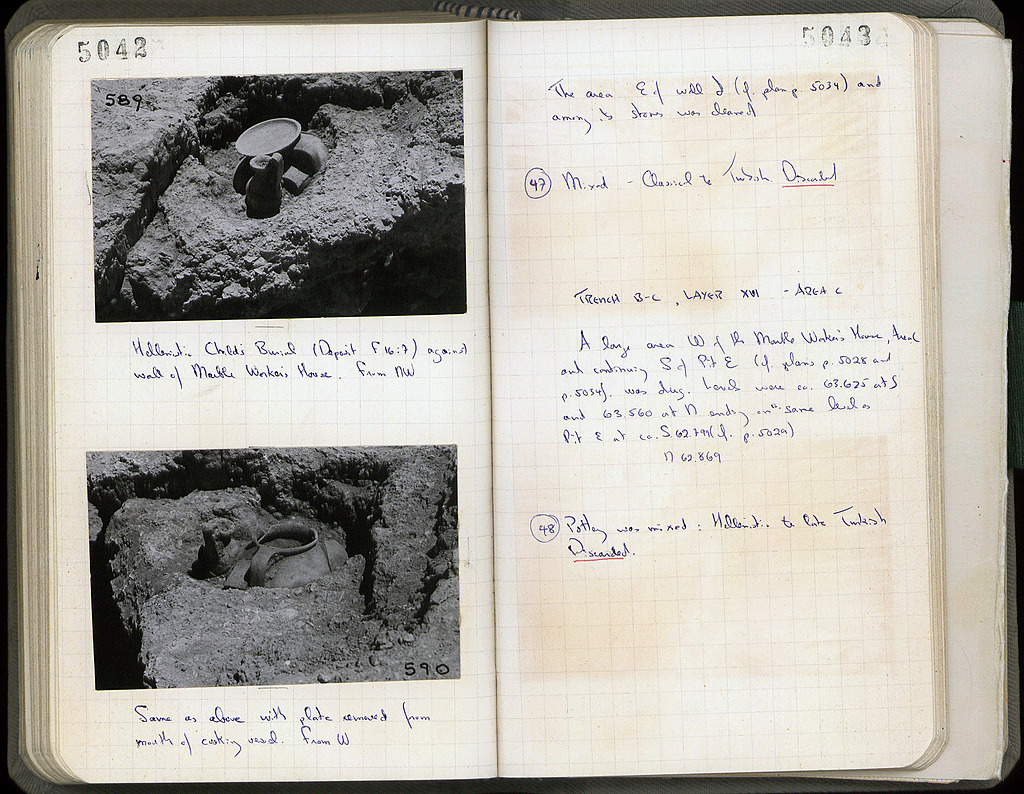 5042
589
Hellenistic Child's Burial (Deposit F 16:7) against
wall of Marble Worker's House. From NW
590
Same as above with plate removed from
mouth of cooking vessel. From W
5043
The area E of wall J (cf. plan p. 5034) and
among its stones was cleaned
47 Mixed - Classical to Turkish. Discarded
TRENCH B-C, LAYER XVI - AREA C
A large area W of the Marble Worker's House, Area C
and continuing S of Pit E (cf. plans p. 5028 and
p. 5034). was dug. Levels were ca. 63.625 at S
and 63.560 at N ending on same level as
Pit E at ca. S. 62.799 (cf. p. 5029)
N 62.869
48 Pottery was mixed: Hellenistic to late Turkish
Discarded.